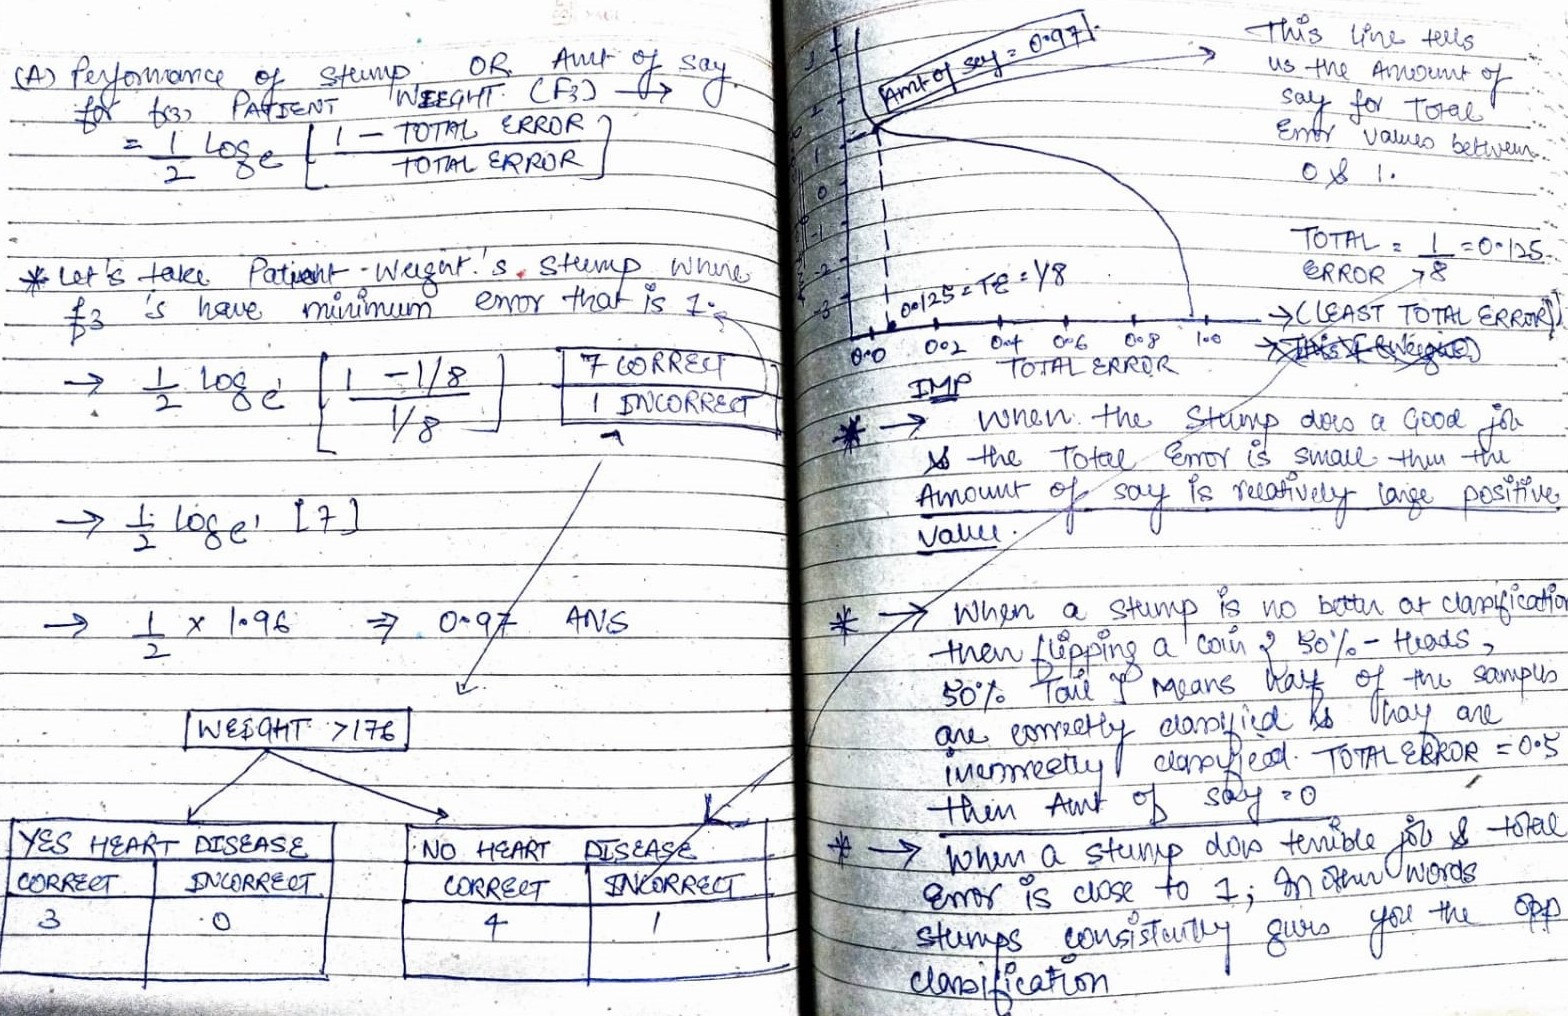 (A) Performance of Stump OR Amt of say
for f(3), PATIENT WEIGHT (F3) →
= 1/2 Log e [1 - TOTAL ERROR / TOTAL ERROR]
* Let's take Patient-Weight's Stump where
f3 's have minimum error that is 1.
→ 1/2 log e [1 - 1/8 / 1/8]
7 CORRECT
1 INCORRECT
→ 1/2 log e [7]
→ 1/2 x 1.96 ⇒ 0.97 ANS
WEIGHT >176
YES HEART DISEASE
CORRECT INCORRECT
3 0
NO HEART DISEASE
CORRECT INCORRECT
4 1
Amt of say = 0.97
This line tells
us the Amount of
say for Total
Error values between
0 & 1.
1
0
-1
-2
-3
TOTAL ERROR = 1/8 = 0.125
→ (LEAST TOTAL ERROR)
0.125 = TE = 1/8
0.0 0.2 0.4 0.6 0.8 1.0
TOTAL ERROR
IMP
* → When the Stump does a Good job
& the Total Error is small then the
Amount of say is relatively large positive
value.
* → When a stump is no better at classification
then flipping a coin { 50% - Heads,
50% Tail } Means half of the samples
are correctly classified & half are
incorrectly classified. TOTAL ERROR = 0.5
then Amt of say = 0
* → When a stump does terrible job & total
Error is close to 1; In other words
stumps consistently gives you the opp
classification